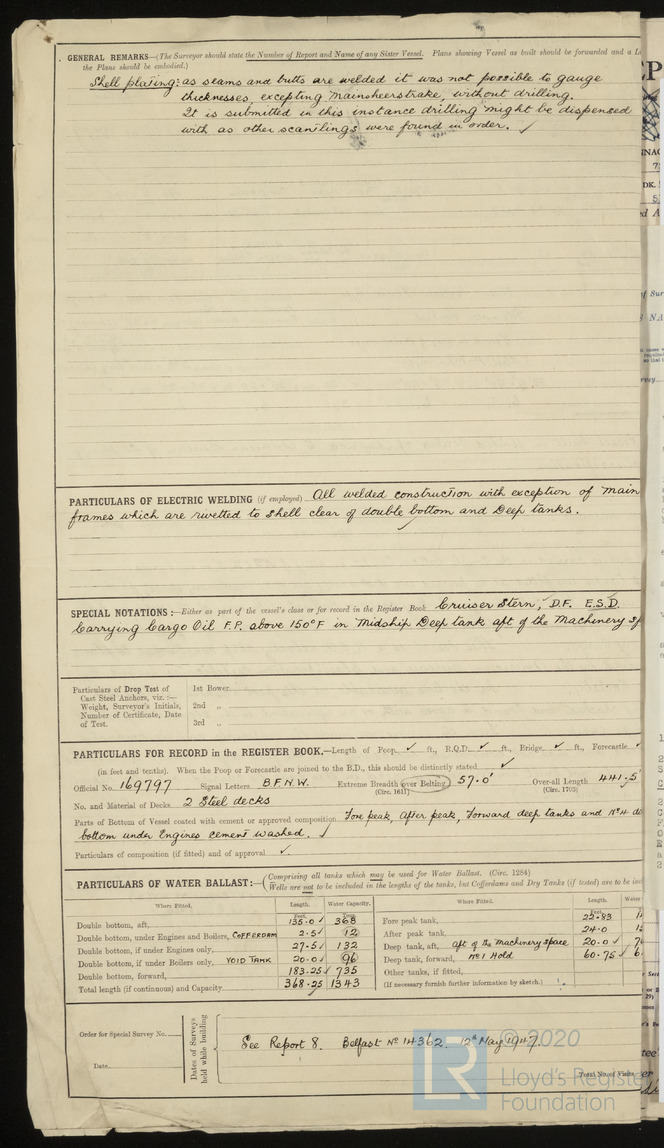 GENERAL REMARKS—(The Surveyor should state the Number of Report and Name of any Sister Vessel. Plans showing Vessel as built should be forwarded and a
the Plans should be embodied.)
Shell plating: as seams and butts are welded it was not possible to gauge
thicknesses, excepting mainsheerstrake, without drilling.
It is submitted in this instance drilling might be dispensed
with as other scantlings were found in order. ✓
PARTICULARS OF ELECTRIC WELDING (if employed) All welded construction with exception of main
frames which are rivetted to shell clear of double bottom and Deep tanks.
SPECIAL NOTATIONS:—Either as part of the vessel's class or for record in the Register Book Cruiser Stern, D.F. E.S.D.
Carrying Cargo Oil F.P. above 150°F in Midship Deep tank aft of the Machinery
Particulars of Drop Test of
Cast Steel Anchors, viz.:—
Weight, Surveyor's Initials,
Number of Certificate, Date
of Test.
1st Bower
2nd „
3rd „
PARTICULARS FOR RECORD in the REGISTER BOOK.—Length of Poop ✓ ft., R.Q.D. ✓ ft., Bridge ✓ ft., Forecastle ✓
(in feet and tenths). When the Poop or Forecastle are joined to the B.D., this should be distinctly stated ✓
Official No. 169797 Signal Letters B.F.N.W. Extreme Breadth over Belting 57.0' Over-all Length 441.5'
(Circ. 1611) (Circ. 1703)
No. and Material of Decks 2 Steel decks
Parts of Bottom of Vessel coated with cement or approved composition Fore peak, After peak, Forward deep tanks and No 4
bottom under Engines cement washed. ✓
Particulars of composition (if fitted) and of approval ✓
PARTICULARS OF WATER BALLAST:—(Comprising all tanks which may be used for Water Ballast. (Circ. 1284)
Wells are not to be included in the lengths of the tanks, but Cofferdams and Dry Tanks (if tested) are to be
Where Fitted. Length. Water Capacity. Where Fitted. Length. Water
Feet. Tons. Feet.
Double bottom, aft, 135.0 ✓ 368 Fore peak tank, 22.83
Double bottom, under Engines and Boilers, COFFERDAM 2.5 ✓ 12 After peak tank, 24.0
Double bottom, if under Engines only, 27.5 ✓ 132 Deep tank, aft, aft of the Machinery space 20.0 ✓
Double bottom, if under Boilers only, VOID TANK 20.0 ✓ 96 Deep tank, forward, No 1 Hold 60.75 ✓
Double bottom, forward, 183.25 ✓ 735 Other tanks, if fitted,
Total length (if continuous) and Capacity 368.25 1343 (If necessary furnish further information by sketch.)
Order for Special Survey No.
Date
Dates of Surveys
held while building
See Report 8. Belfast No 14362. 12th May 1947.
Total No. of Visits
© 2020
LR
Lloyd's Registe
Foundation